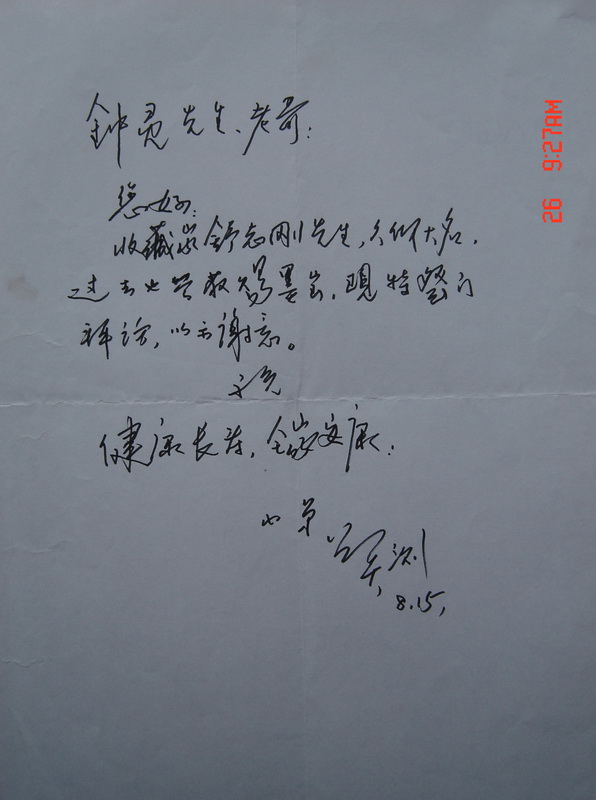 钟灵先生、老哥:
您好:
收藏家舒志刚先生,久仰大名,
过去也曾敬赐墨宝,现特登门
拜访,以示谢意。
祝
健康长寿,全家安康:
小弟
8.15,
26 9:27AM